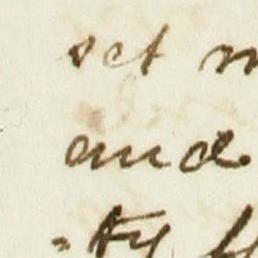 set
and
-ty